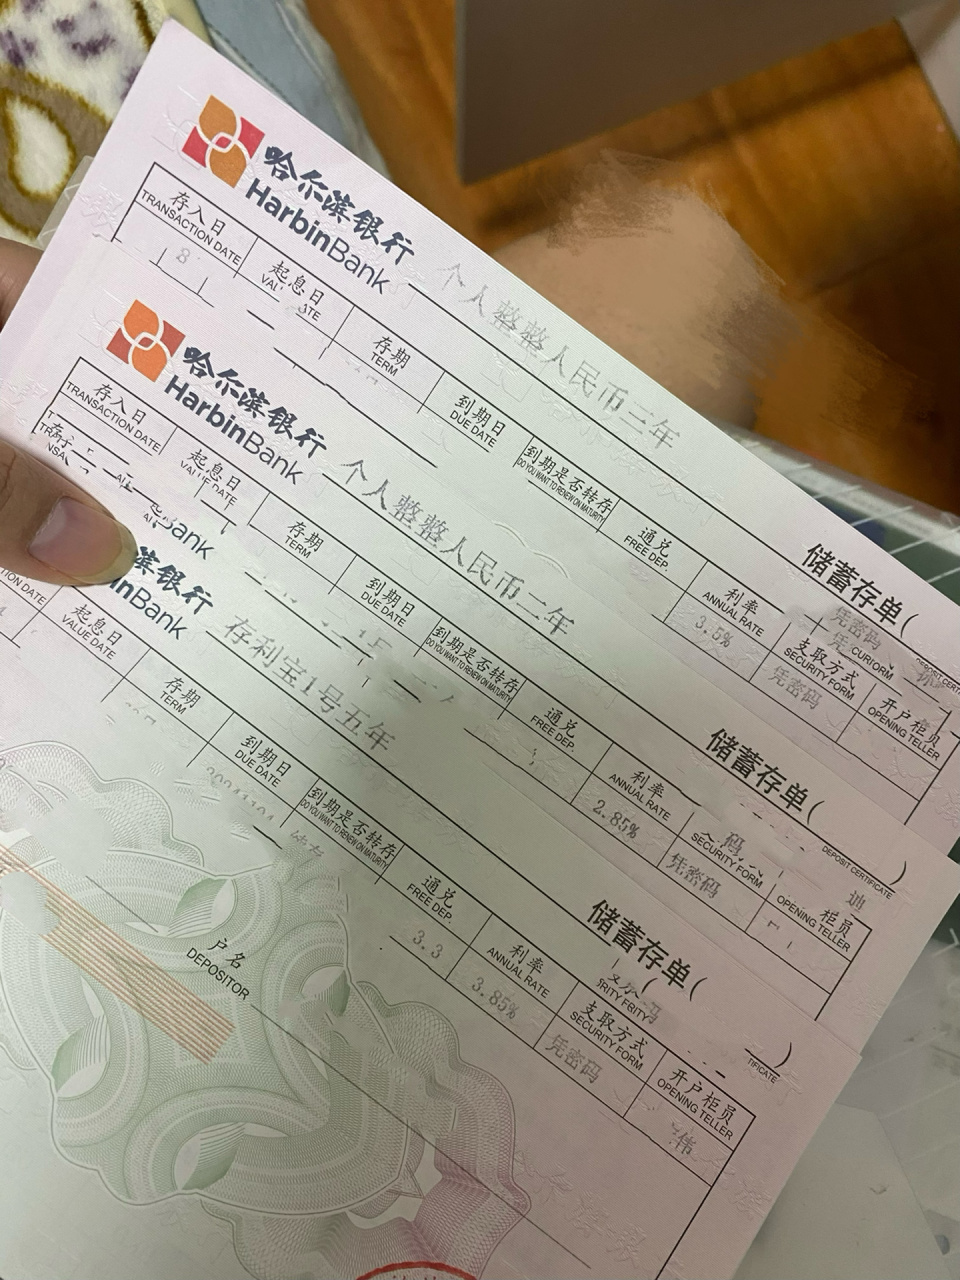 哈尔滨银行
HarbinBank
个人整整人民币三年
储蓄存单(
存入日
TRANSACTION DATE
起息日
存期
TERM
到期日
DUE DATE
到期是否转存
DO YOU WANT TO RENEW ON MATURITY
通兑
FREE DEP.
利率
ANNUAL RATE
支取方式
SECURITY FORM
开户柜员
OPENING TELLER
3.5%
凭密码
哈尔滨银行
HarbinBank
个人整整人民币二年
储蓄存单( )
DEPOSIT CERTIFICATE
存入日
TRANSACTION DATE
起息日
VALUE DATE
存期
TERM
到期日
DUE DATE
到期是否转存
DO YOU WANT TO RENEW ON MATURITY
通兑
FREE DEP.
利率
ANNUAL RATE
SECURITY FORM
柜员
OPENING TELLER
2.85%
凭密码
滨银行
inBank
存利宝1号五年
储蓄存单( )
起息日
VALUE DATE
存期
TERM
到期日
DUE DATE
到期是否转存
DO YOU WANT TO RENEW ON MATURITY
通兑
FREE DEP.
利率
ANNUAL RATE
支取方式
SECURITY FORM
开户柜员
OPENING TELLER
3.3
3.85%
凭密码
伟
户名
DEPOSITOR